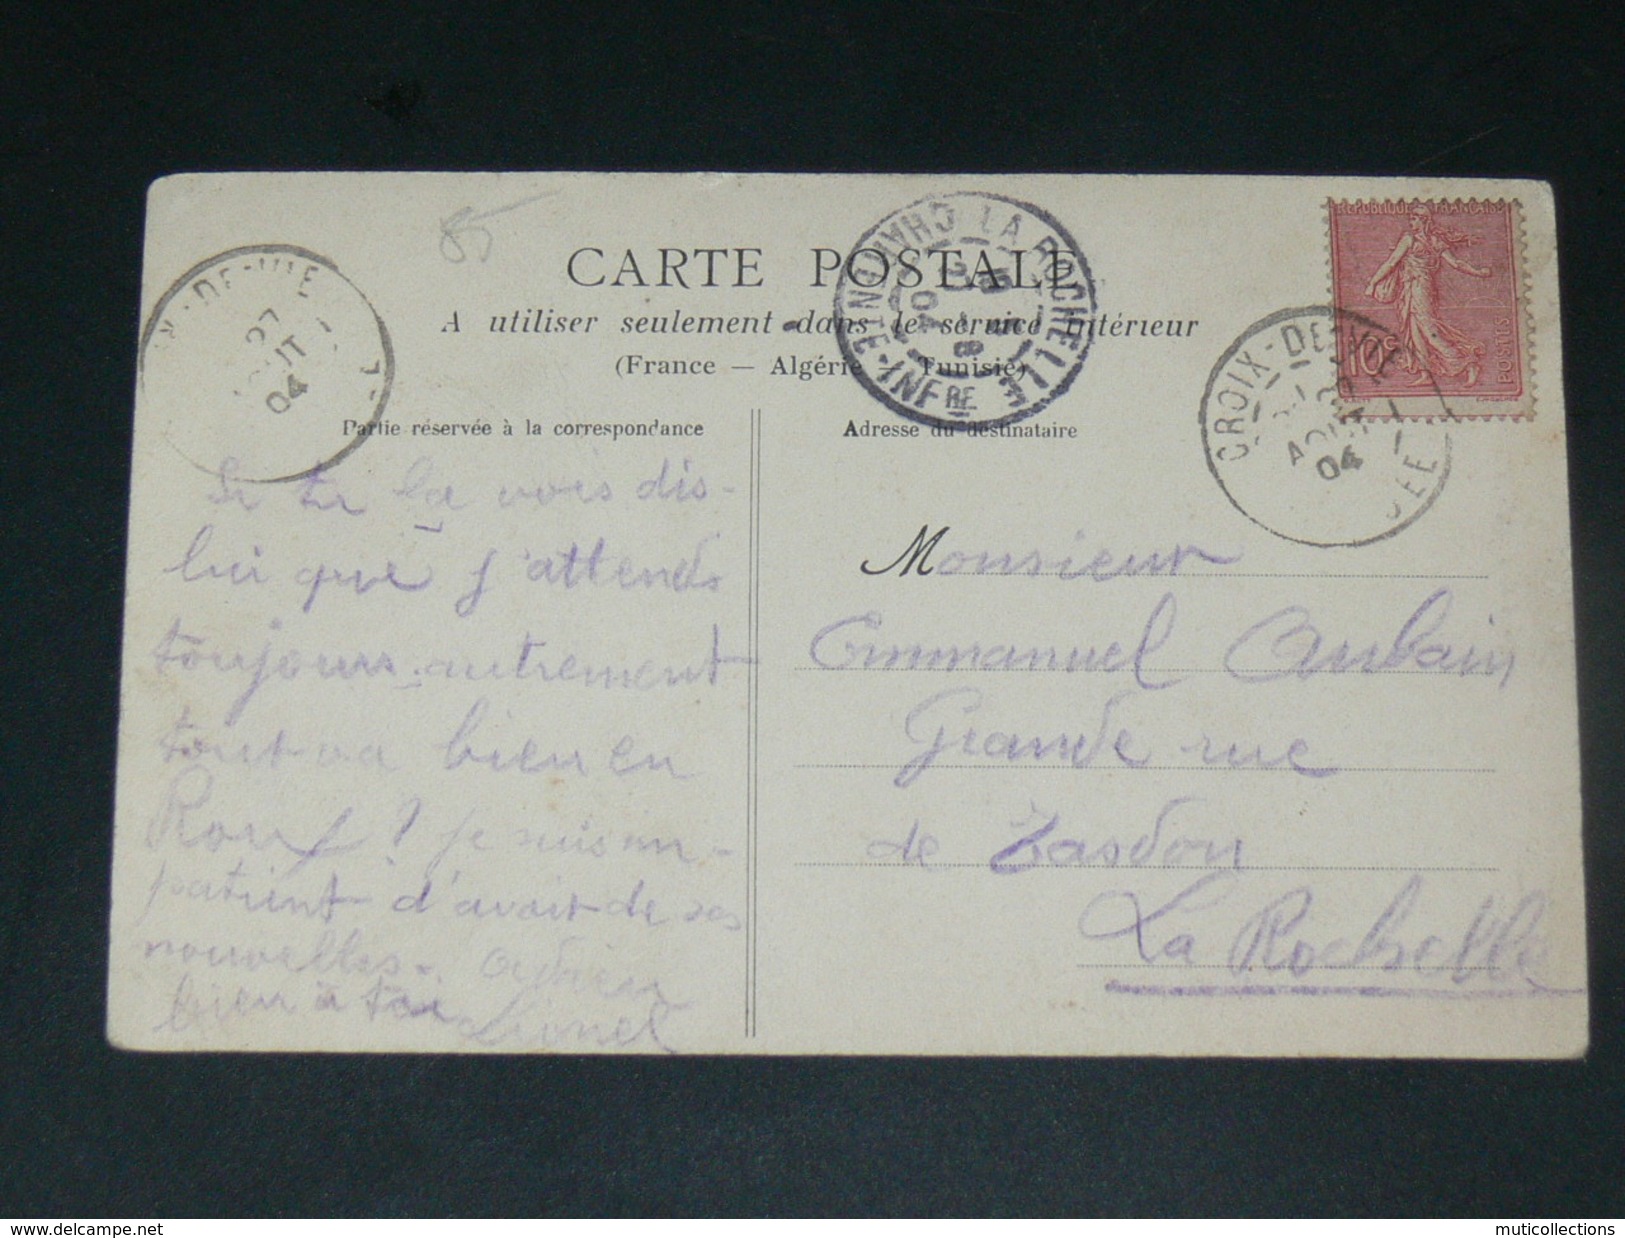 85
CARTE POSTALE
A utiliser seulement dans le service intérieur
(France — Algérie — Tunisie)
Partie réservée à la correspondance
Si tu la vois dis-
lui que j'attends
toujours autrement
tout va bien en
je suis im-
patient d'avoir de ses
nouvelles.
bien à toi Lionel
Adresse du destinataire
Monsieur
Emmanuel Aubain
Grande rue
de Tasdon
La Rochelle
X-DE-VIE
27
OUT
04
LA ROCHELLE
CHARENTE-INFRE
04
CROIX-DE-VIE
AOUT
04
DEE
REPUBLIQUE FRANÇAISE
10c
POSTES
delcampe.net
muticollections